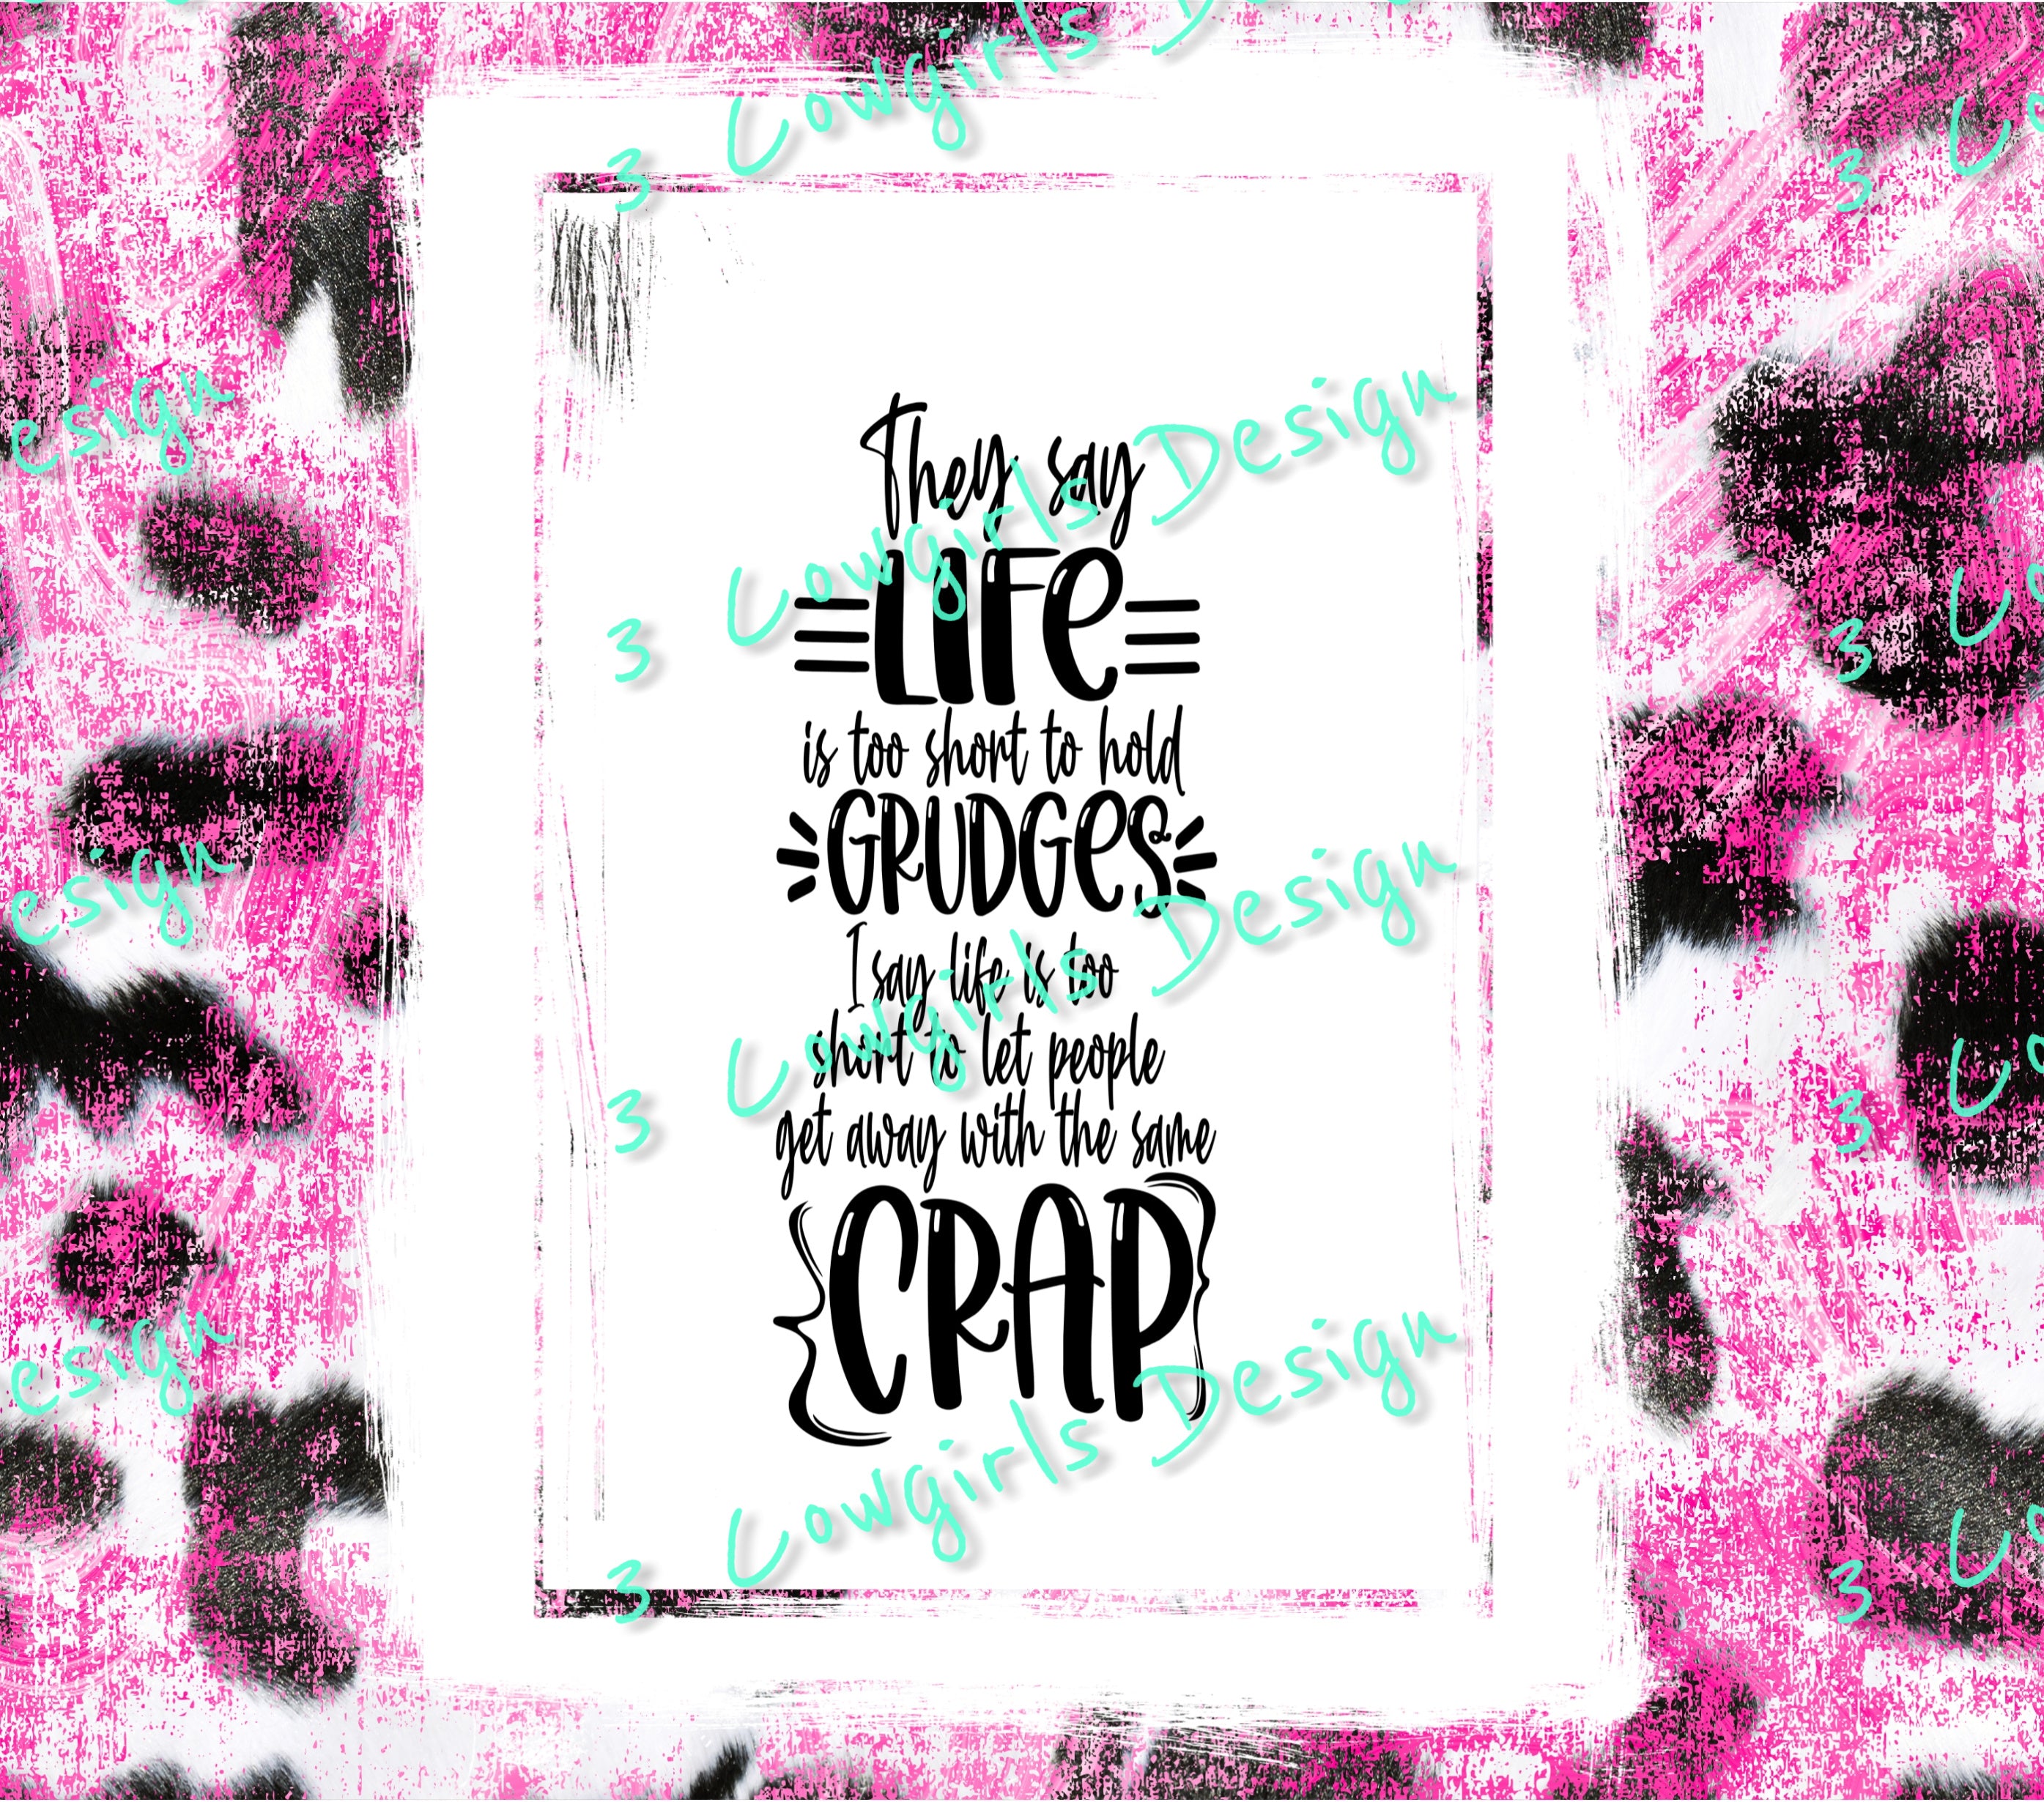 They say
LIFe
is too short to hold
GRUDGes
I say life is too
short to let people
get away with the same
CRAP
3 Cowgirls Design
3 Cowgirls Design
3 Cowgirls Design
3 Cowgirls Design
esign
esign
esign
3 C
3 C
3 C
3 C